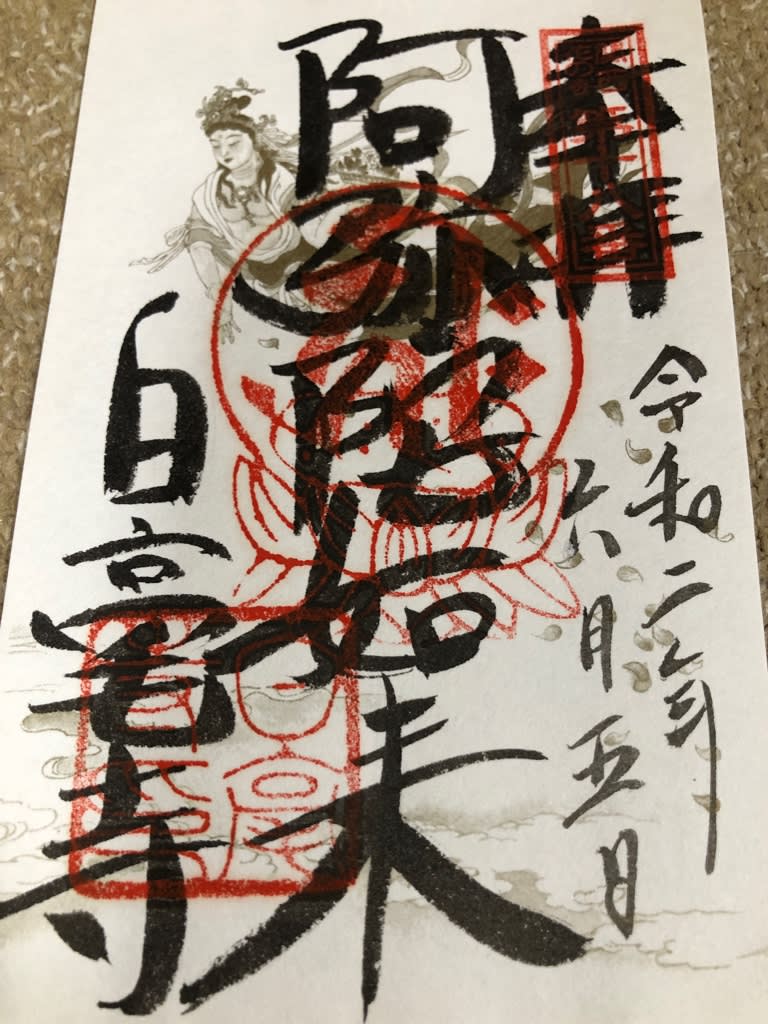 奉拝
令和二年
六月五日
阿弥陀如来
白毫寺